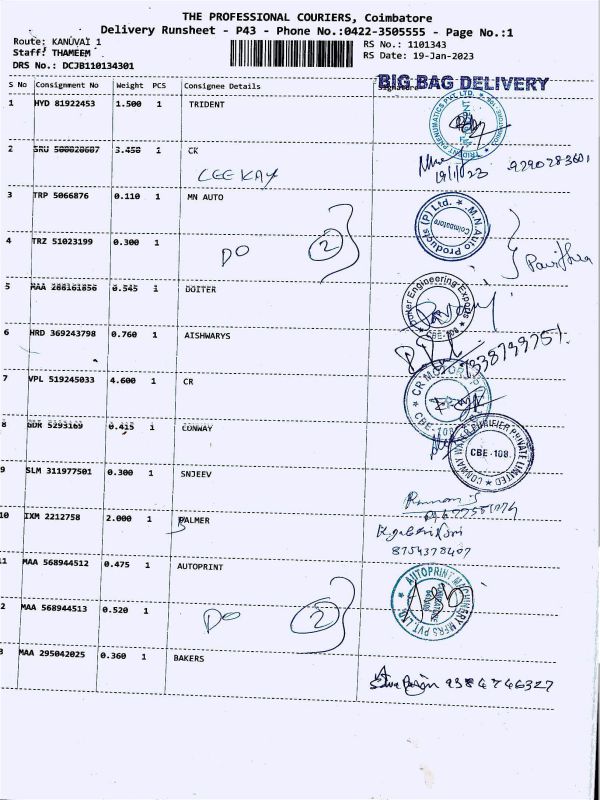 THE PROFESSIONAL COURIERS, Coimbatore
Delivery Runsheet - P43 - Phone No.:0422-3505555 - Page No.:1
Route: KANUVAI 1
RS No.: 1101343
Staff: THAMEEM
RS Date: 19-Jan-2023
DRS No.: DCJB110134301
BIG BAG DELIVERY
S No Consignment No Weight PCS Consignee Details Signature
1 HYD 81922453 1.500 1 TRIDENT
TRIDENT PNEUMATICS PVT. LTD.
2 SRU 500020607 3.450 1 CK
CEE KAY
19/1/23 9290283601
3 TRP 5066876 0.110 1 MN AUTO
M.N. Auto Products (P) Ltd. Coimbatore
4 TRZ 51023199 0.300 1
DO 2
Pavithra
5 MAA 286161856 0.545 1 DOITER
Engineering Exports CBE-108
6 HRD 369243798 0.760 1 AISHWARYS
9338799751
7 VPL 519245033 4.600 1 CR
CR MOTORS CBE-108
8 GDR 5293169 0.415 1 CONWAY
CONWAY WATER PURIFIER PRIVATE LIMITED CBE-108.
9 SLM 311977501 0.300 1 SNJEEV
10 IXM 2212758 2.000 1 PALMER
8754378407
11 MAA 568944512 0.475 1 AUTOPRINT
AUTOPRINT MACHINERY MFRS PVT. LTD.
2 MAA 568944513 0.520 1
DO 2
3 MAA 295042025 0.360 1 BAKERS
9384746327